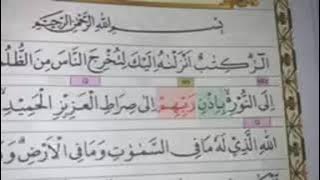 بِسْمِ اللهِ الرَّحْمٰنِ الرَّحِيْمِ
الٓرٰ ۗ كِتٰبٌ اَنْزَلْنٰهُ اِلَيْكَ لِتُخْرِجَ النَّاسَ مِنَ الظُّلُمٰ
اِلَى النُّوْرِ ەۙ بِاِذْنِ رَبِّهِمْ اِلٰى صِرَاطِ الْعَزِيْزِ الْحَمِيْدِۙ
اللهِ الَّذِيْ لَهٗ مَا فِى السَّمٰوٰتِ وَمَا فِى الْاَرْضِۗ وَ